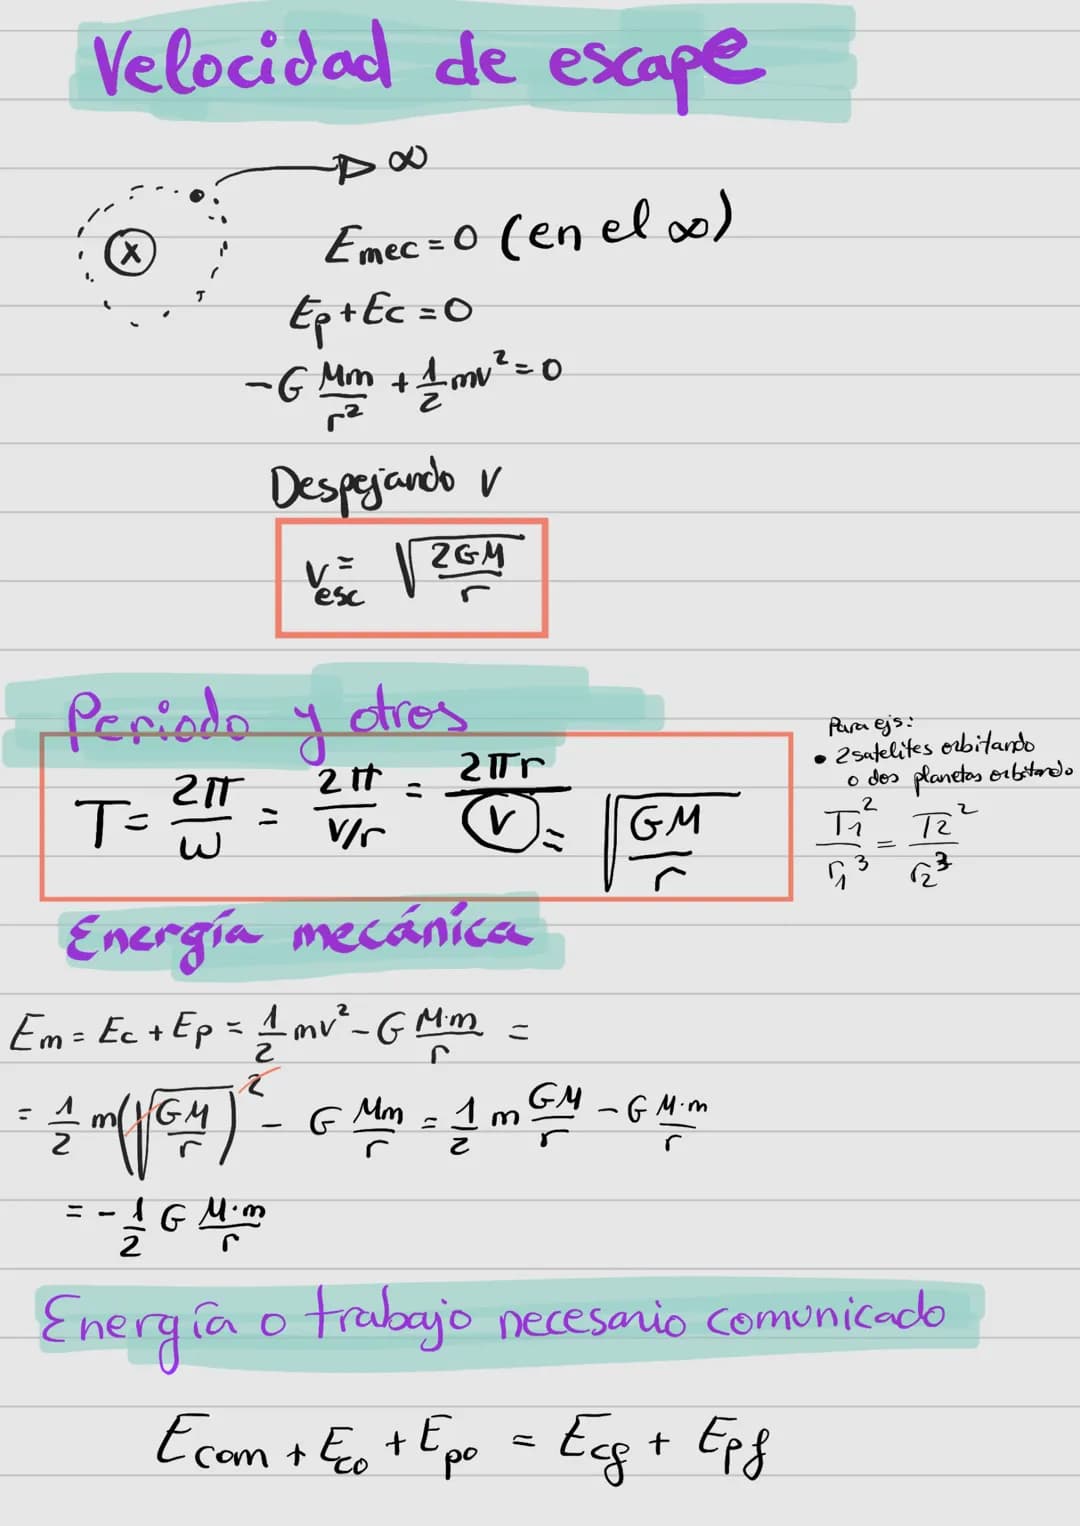 Velocidad de escape
∞
x
Emec = 0 (en el ∞)
Ep + Ec = 0
-G Mm/r² + 1/2 mv² = 0
Despejando v
Vesc = √(2GM/r)
Periodo y otros
T = 2π/ω = 2π/(v/r) = 2πr/v = √(GM/r)
Para ejs:
• 2 satelites orbitando
o dos planetas orbitando
T₁²/r₁³ = T2²/r₂³
Energía mecánica
Em = Ec + Ep = 1/2 mv² - G M·m/r =
= 1/2 m(√(GM/r))² - G Mm/r = 1/2 m GM/r - G M·m/r
= - 1/2 G M·m/r
Energía o trabajo necesario comunicado
Ecom + Eco + Epo = Ecf + Epf